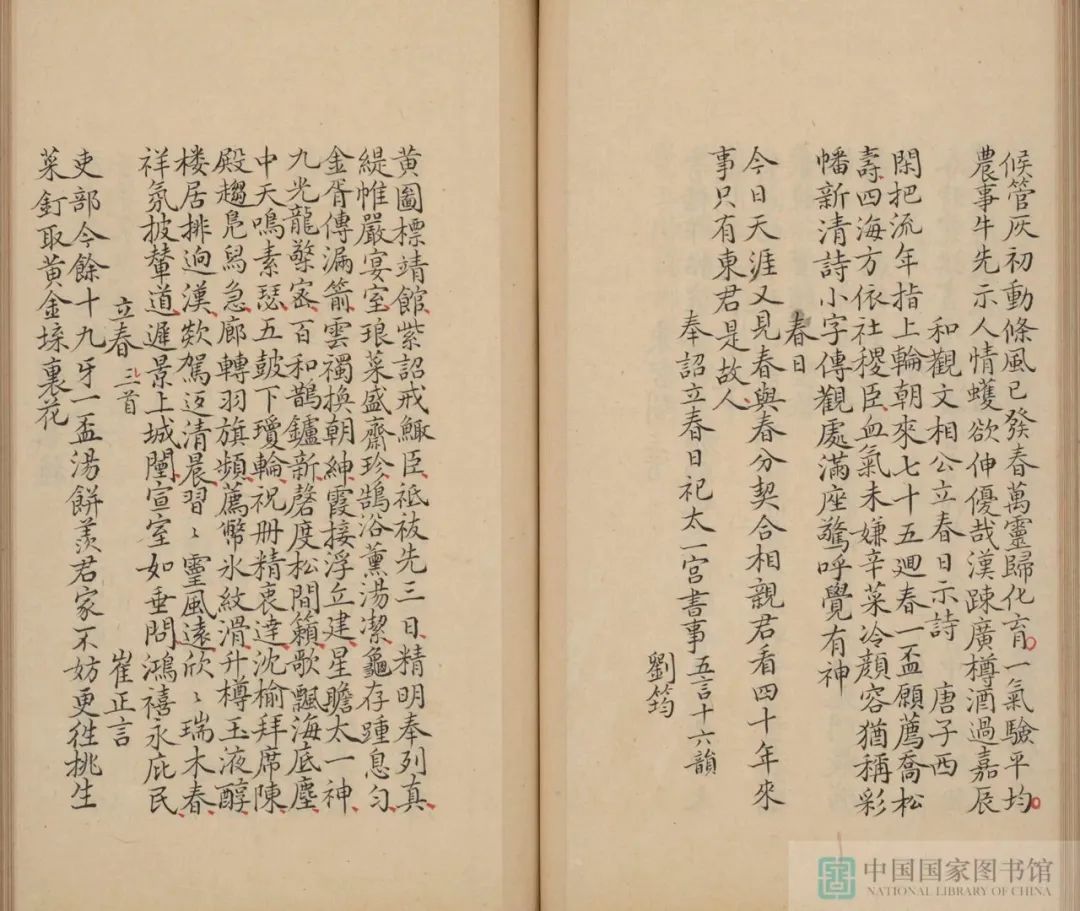 候管灰初動條風已發春萬靈歸化育一氣驗平均
農事牛先示人情蠖欲伸優哉漢踈廣樽酒過嘉辰
和觀文相公立春日示詩 唐子西
閑把流年指上輪朝來七十五廻春一盃願薦喬松
壽四海方依社稷臣血氣未嫌辛菜冷顔容猶稱彩
幡新清詩小字傳觀處滿座驚呼覺有神
春日
今日天涯又見春與春分契合相親君看四十年來
事只有東君是故人
奉詔立春日祀太一宮書事五言十六韻
劉筠
黄圖標靖館紫詔戒鯫臣祗祓先三日精明奉列真
緹帷嚴宴室琅菜盛齋珍鵠浴薰湯潔龜存踵息匀
金胥傳漏箭雲襡換朝紳霞接浮丘建星瞻太一神
九光龍檠宻百和鵲鑪新磬度松間籟歌飄海底塵
中天鳴素瑟五鼓下瓊輪祝册精衷達沈榆拜席陳
殿趨鳬舄急廊轉羽旗頻薦幣氷紋滑升樽玉液醇
楼居排逈漢欻駕返清晨習〻靈風遠欣〻瑞木春
祥氛披輦道遲景上城闉宣室如垂問鴻禧永庇民
立春三首 崔正言
吏部今餘十九牙一盃湯餅羡君家不妨更徃挑生
菜飣取黄金埰裏花
中国国家图书馆
NATIONAL LIBRARY OF CHINA